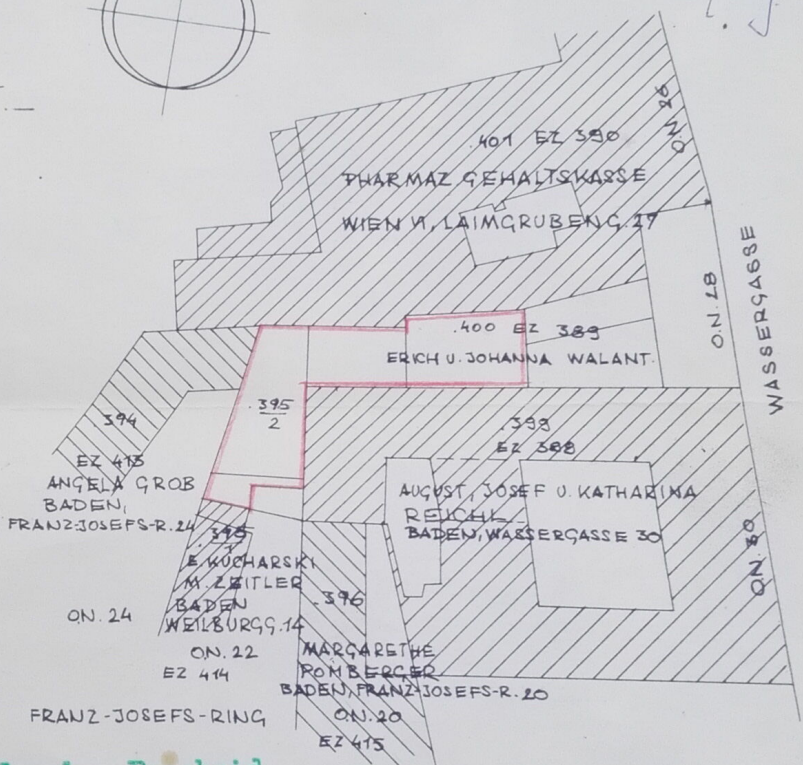 .401 EZ 390
PHARMAZ. GEHALTSKASSE
WIEN VI, LAIMGRUBENG. 27
O.N. 26
O.N. 28
WASSERGASSE
.400 EZ 389
ERICH U. JOHANNA WALANT.
.395
2
.394
EZ 413
ANGELA GROB
BADEN,
FRANZ-JOSEFS-R. 24
.399
EZ 388
AUGUST, JOSEF U. KATHARINA
REICHL
BADEN, WASSERGASSE 30
O.N. 30
.395
1
E. KUCHARSKI
M. ZEITLER
BADEN
WEILBURGG. 14
O.N. 24
O.N. 22
EZ 414
.396
MARGARETHE
POMBERGER
BADEN, FRANZ-JOSEFS-R. 20
O.N. 20
EZ 415
FRANZ-JOSEFS-RING